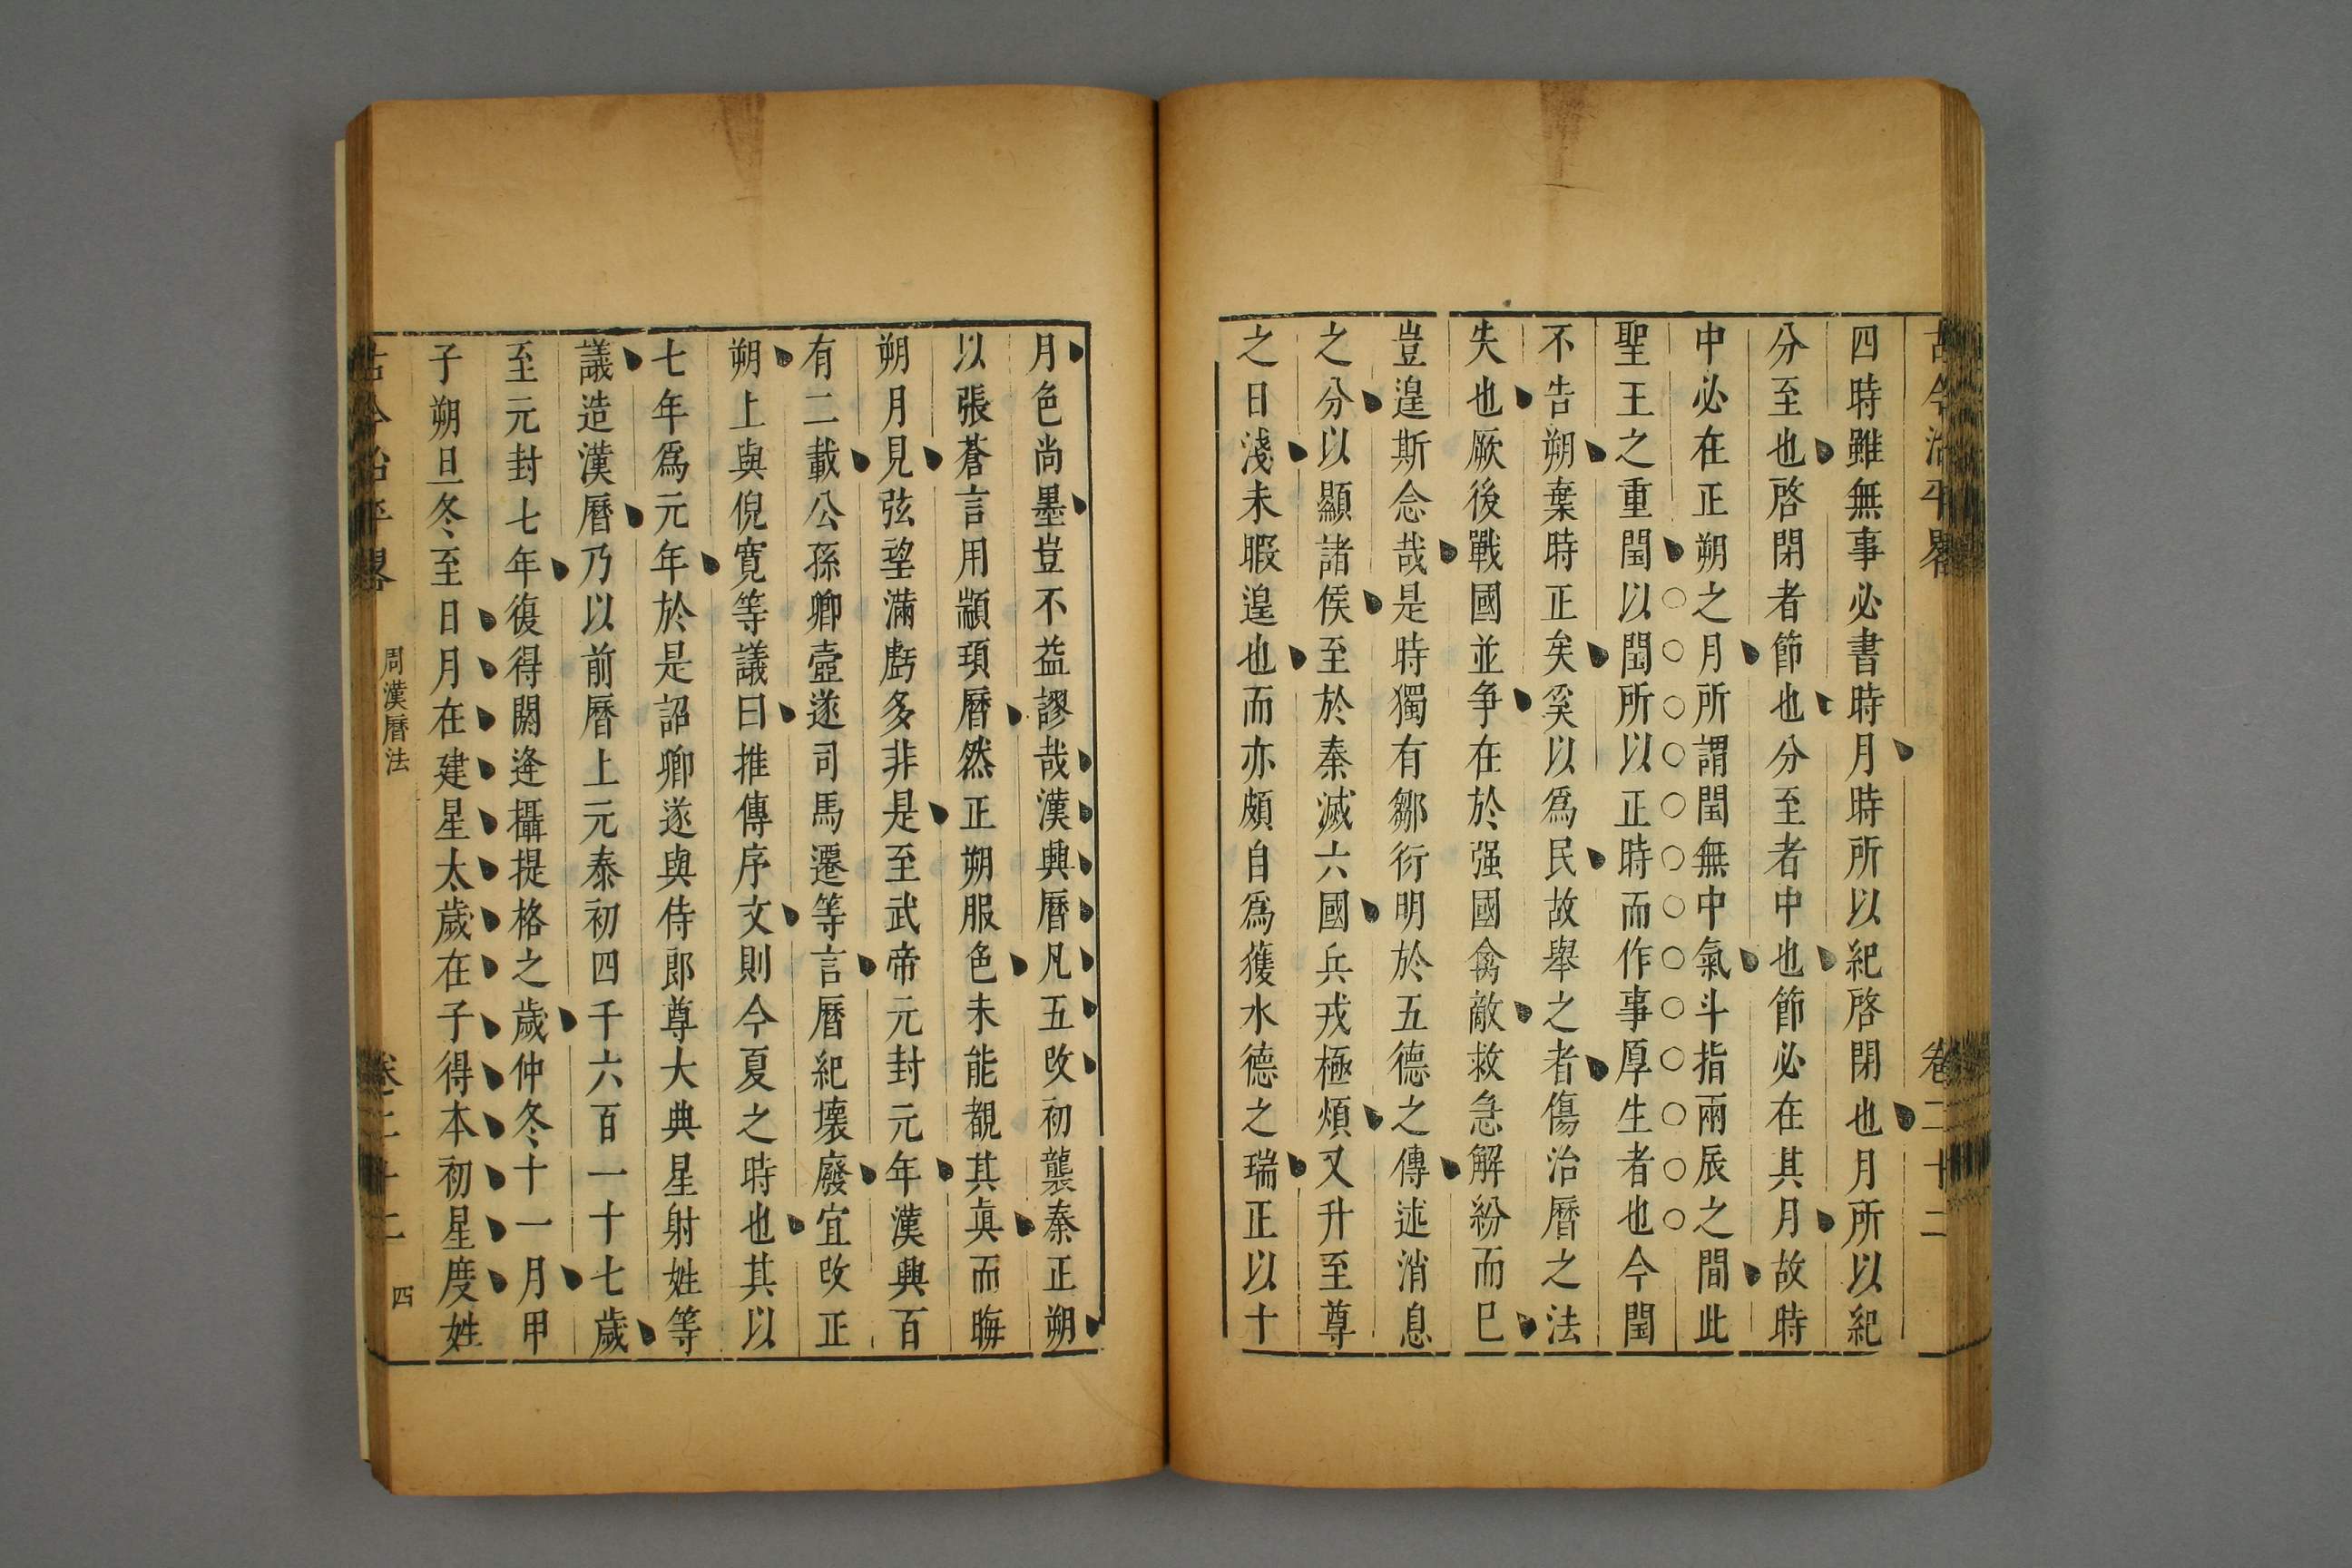 古今治平畧 卷二十二
四時雖無事必書時月時所以紀啓閉也月所以紀
分至也啓閉者節也分至者中也節必在其月故時
中必在正朔之月所謂閏無中氣斗指兩辰之間此
聖王之重閏以閏所以正時而作事厚生者也今閏
不告朔棄時正矣奚以爲民故舉之者傷治曆之法
失也厥後戰國並爭在於强國禽敵救急解紛而巳
豈遑斯念哉是時獨有鄒衍明於五德之傳述消息
之分以顯諸侯至於秦滅六國兵戎極煩又升至尊
之日淺未暇遑也而亦頗自爲獲水德之瑞正以十
月色尚墨豈不益謬哉漢興曆凡五改初襲秦正朔
以張蒼言用顓頊曆然正朔服色未能覩其眞而晦
朔月見弦望滿虧多非是至武帝元封元年漢興百
有二載公孫卿壺遂司馬遷等言曆紀壞廢宜改正
朔上與倪寬等議曰推傳序文則今夏之時也其以
七年爲元年於是詔卿遂與侍郎尊大典星射姓等
議造漢曆乃以前曆上元泰初四千六百一十七歲
至元封七年復得閼逢攝提格之歲仲冬十一月甲
子朔旦冬至日月在建星太歲在子得本初星度姓
古今治平畧 周漢曆法 卷二十二 四